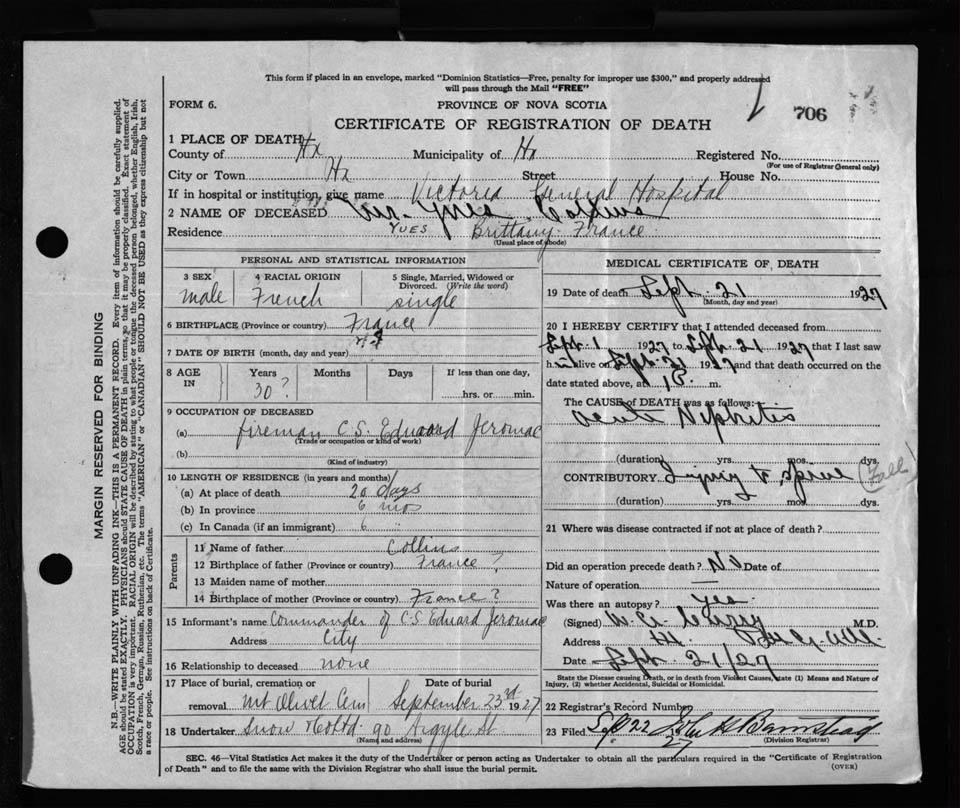 This form if placed in an envelope, marked "Dominion Statistics—Free, penalty for improper use $300," and properly addressed
will pass through the Mail "FREE"
FORM 6.
PROVINCE OF NOVA SCOTIA
706
CERTIFICATE OF REGISTRATION OF DEATH
1 PLACE OF DEATH
County of Hx Municipality of Hx Registered No.
(For use of Registrar General only)
City or Town Hx Street House No.
If in hospital or institution, give name Victoria General Hospital
2 NAME OF DECEASED Yves Collins
YUES
Residence Brittany France
(Usual place of abode)
PERSONAL AND STATISTICAL INFORMATION
3 SEX male
4 RACIAL ORIGIN French
5 Single, Married, Widowed or Divorced. (Write the word) single
6 BIRTHPLACE (Province or country) France
7 DATE OF BIRTH (month, day and year)
8 AGE IN Years Months Days If less than one day,
30 ? hrs. or min.
9 OCCUPATION OF DECEASED
(a) fireman C.S. Edouard Jeromac
(Trade or occupation or kind of work)
(b)
(Kind of industry)
10 LENGTH OF RESIDENCE (in years and months)
(a) At place of death 20 days
(b) In province 6 mos
(c) In Canada (if an immigrant) 6 "
Parents
11 Name of father Collins
12 Birthplace of father (Province or country) France ?
13 Maiden name of mother
14 Birthplace of mother (Province or country) France ?
15 Informant's name Commander of C.S. Eduard Jeromac
Address City
16 Relationship to deceased none
17 Place of burial, cremation or removal Mt Olivet Cem
Date of burial September 23rd 1927
18 Undertaker Snow & Co Ltd 90 Argyle St
(Name and address)
MEDICAL CERTIFICATE OF DEATH
19 Date of death Sept. 21 1927
(Month, day and year)
20 I HEREBY CERTIFY that I attended deceased from
Sept 1 1927 to Sept 21 1927 that I last saw
him alive on Sept. 21 1927 and that death occurred on the
date stated above, at m.
The CAUSE OF DEATH was as follows:
Acute Nephritis
(duration) yrs. mos. dys.
CONTRIBUTORY Injury to spine (Fall)
(duration) yrs. mos. dys.
21 Where was disease contracted if not at place of death?
Did an operation precede death? No Date of
Nature of operation —
Was there an autopsy? Yes
(Signed) M.D.
Address
Date Sept. 21/27
State the Disease causing Death, or in death from Violent Causes, state (1) Means and Nature of
Injury, (2) whether Accidental, Suicidal or Homicidal.
22 Registrar's Record Number
23 Filed Sept 22 27
(Division Registrar)
SEC. 46—Vital Statistics Act makes it the duty of the Undertaker or person acting as Undertaker to obtain all the particulars required in the "Certificate of Registration
of Death" and to file the same with the Division Registrar who shall issue the burial permit.
(OVER)
MARGIN RESERVED FOR BINDING
N.B.—WRITE PLAINLY WITH UNFADING INK—THIS IS A PERMANENT RECORD. Every item of information should be carefully supplied.
AGE should be stated EXACTLY. PHYSICIANS should STATE CAUSE OF DEATH in plain terms, so that it may be properly classified. Exact statement of
OCCUPATION is very important. RACIAL ORIGIN will be described by stating to what people or tongue the deceased person belonged, whether English, Irish,
Scotch, French, German, Russian, Ruthenian, etc. The terms "AMERICAN" or "CANADIAN" SHOULD NOT BE USED as they express citizenship but not
a race or people. See instructions on back of Certificate.